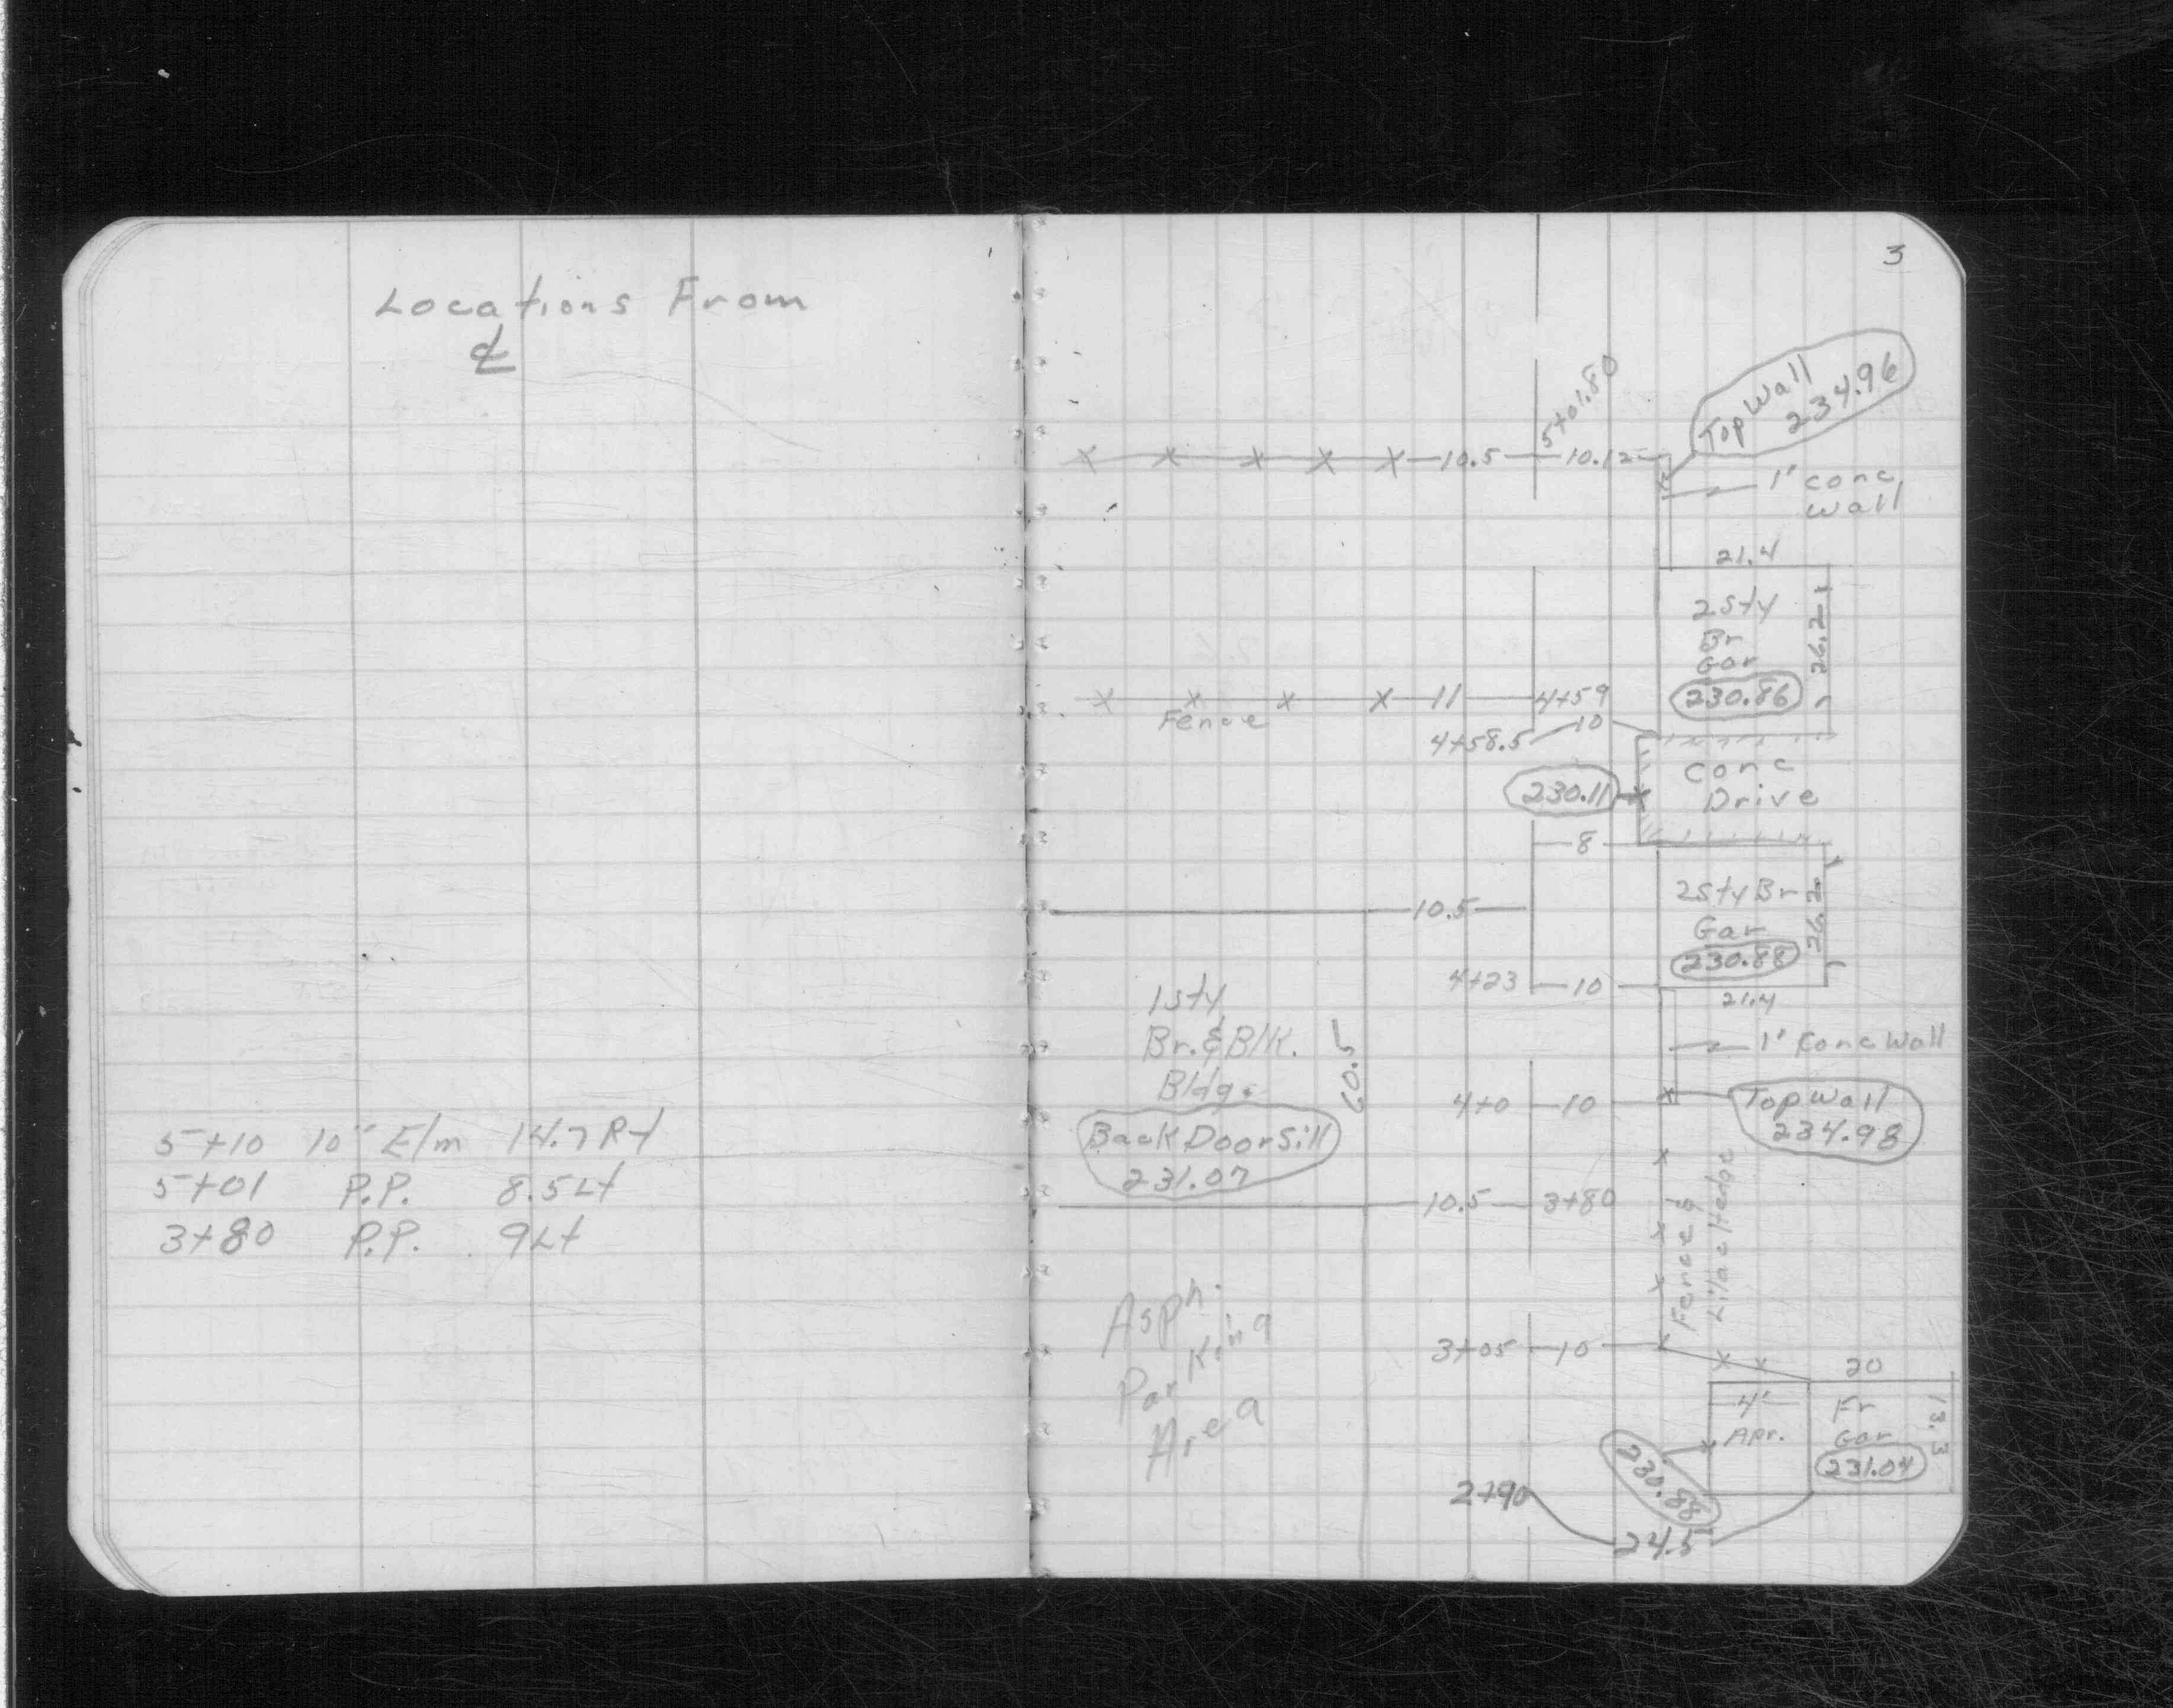 Locations From
℄
5+10 10" Elm 14.7 Rt
5+01 P.P. 8.5 Lt
3+80 P.P. 9 Lt
3
5+01.80
Top Wall
234.96
10.5
10.12
1' conc
wall
21.4
2 Sty
Br
Gar
230.86
26.2
11
4+59
Fence
4+58.5
10
230.11
Conc
Drive
8
10.5
2 Sty Br
Gar
230.88
26.2
4+23
10
21.4
1 Sty
Br. & Blk.
Bldg.
60.5
1' Conc Wall
4+0
10
Top Wall
234.98
Back Door Sill
231.07
10.5
3+80
Fence &
Lilac Hedge
Asph.
Parking
Area
3+05
10
20
4'
Apr.
Fr
Gar
231.04
13.3
230.88
2+90
24.5